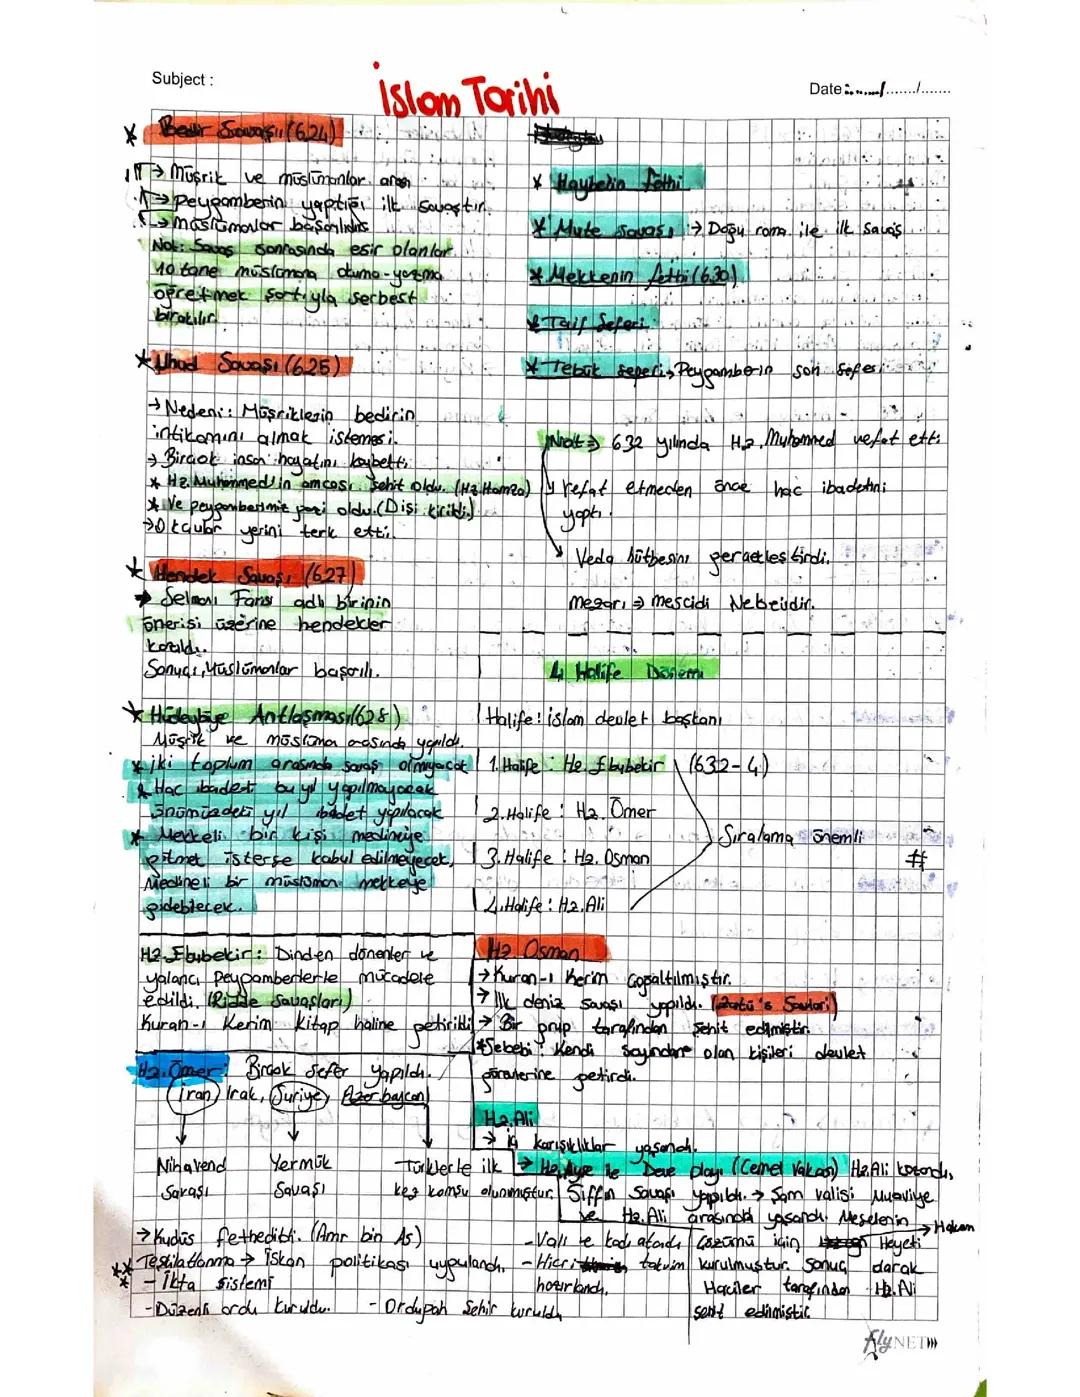 Subject :
İslam Tarihi
Date : ....../......./.......
* Bedir Savaşı (624)
→ Müşrik ve müslümanlar arası
→ Peygamberin yaptığı ilk savaştır.
→ müslümanlar başarılıdır
Not: Savaş sonrasında esir olanlar
10 tane müslümana okuma-yazma
öğretmek şartıyla serbest
bırakılır.
* Uhud Savaşı (625)
→ Nedeni: Müşriklerin bedirin
intikamını almak istemesi.
→ Birçok insan hayatını kaybetti
* Hz. Muhammed'in amcası şehit oldu. (Hz Hamza)
* Ve peygamberimiz yara oldu. (Dişi kırıldı.)
→ Okçular yerini terk etti.
* Hendek Savaşı (627)
→ Selmanı Farisi adlı birinin
önerisi üzerine hendekler
kazıldı.
Sonuç, Müslümanlar başarılı.
* Hudeybiye Antlaşması (628)
Müşrik ve müslüman arasında yapıldı.
* iki toplum arasında savaş olmayacak
* Hac ibadeti bu yıl yapılmayacak
önümüzdeki yıl ibadet yapılacak
* Mekkeli bir kişi medineye
gitmek isterse kabul edilmeyecek,
Medineli bir müslüman mekkeye
gidebilecek.
* Hayberin fethi
* Mute savaşı → Doğu roma ile ilk savaş
* Mekkenin fethi (630)
* Taif Seferi
* Tebük seferi → Peygamberin son seferi
Not ⇒ 632 yılında Hz. Muhammed vefat etti
↳ vefat etmeden önce hac ibadetini
yaptı.
Veda hütbesini gerçekleştirdi.
mezarı ⇒ mescidi Nebevidir.
4 Halife Dönemi
Halife: islam devlet başkanı
1. Halife : Hz. Ebubekir (632-4)
2. Halife : Hz. Ömer
Sıralama önemli
3. Halife : Hz. Osman
#
4. Halife : Hz. Ali
Hz. Ebubekir : Dinden dönenler ve
yalancı peygamberlerle mücadele
edildi. (Ridde Savaşları)
Kuran-ı Kerim kitap haline getirildi
Hz. Osman
→ Kuran-ı Kerim çoğaltılmıştır.
→ İlk deniz savaşı yapıldı. (Zatü's Savari)
→ Bir grup tarafından şehit edilmiştir.
* Sebebi : Kendi soyundan olan kişileri devlet
görevlerine getirdi.
Hz. Ömer : Birçok sefer yapıldı.
İran, Irak, Suriye, Azerbaycan
Nihavend Savaşı
Yermük Savaşı
Türklerle ilk kez komşu olunmuştur.
→ Kudüs fethedildi. (Amr bin As)
** Teşkilatlanma → İskan politikası uygulandı.
* - İkta sistemi
- Düzenli ordu kuruldu.
- Ordugah şehir kuruldu
- Vali ve kadı atandı
- Hicri takvim
hazırlandı.
Hz. Ali
→ iç karışıklıklar yaşandı.
→ Hz. Ayşe ile Deve olayı (Cemel Vakası) Hz. Ali kazandı,
Sıffin Savaşı yapıldı. → Şam valisi Muaviye
ve Hz. Ali arasında yaşandı. Meselenin
çözümü için Hakem Heyeti
kurulmuştur. Sonuç olarak
Hariciler tarafından Hz. Ali
şehit edilmiştir.
FlyNET